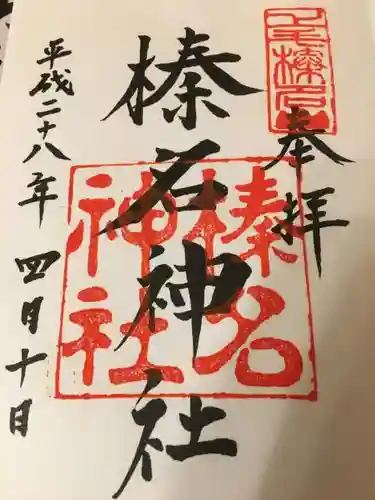 奉拝
榛名神社
平成二十八年 四月十日
榛名
神社